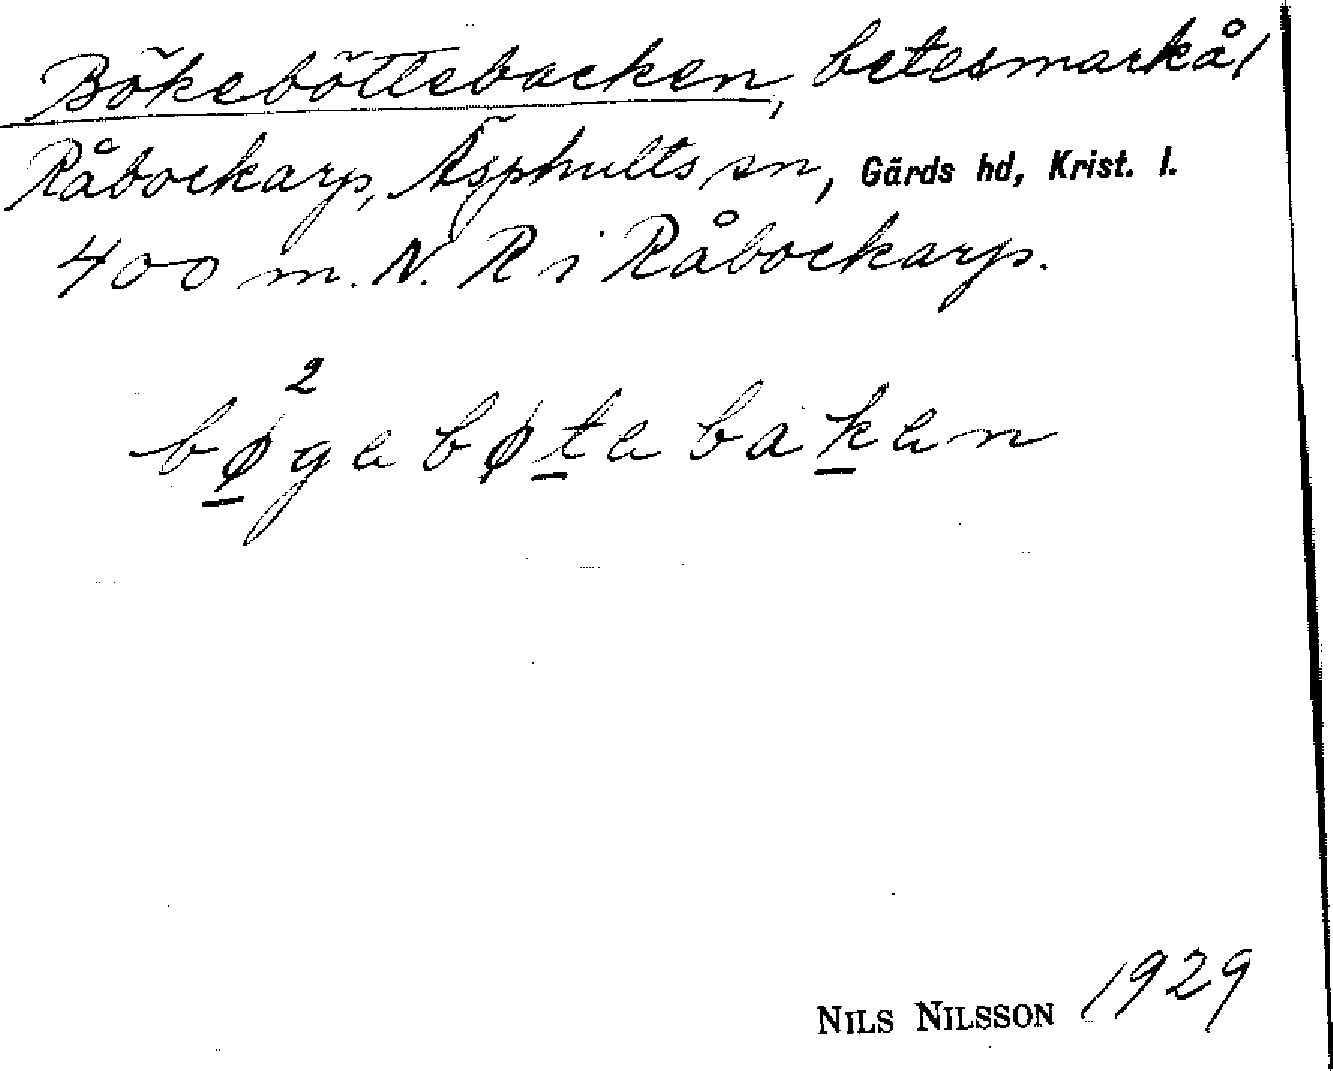 Bökeböttebacken, betesmark å
Råbockarp, Äsphults sn, Gärds hd, Krist. l.
400 m. N. R i Råbockarp.
2
bøgebøtebaken
NILS NILSSON 1929